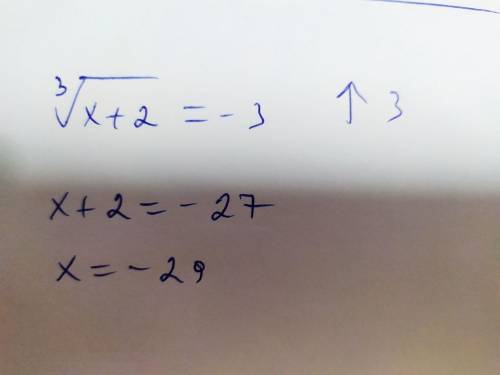 ∛(x+2) = -3 ↑ 3
x+2 = -27
x = -29